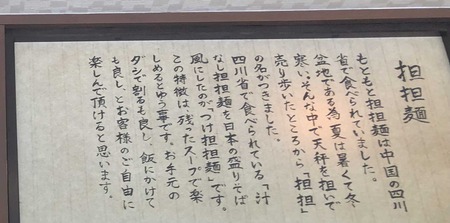 担担麺
もともと担担麺は中国の四川
省で食べられていました。
盆地である為夏は暑くて冬
寒い。そんな中で天秤を担いで
売り歩いたところから「担担」
の名がつきました。
四川省で食べられている「汁
なし担担麺」を日本の盛りそば
風にしたのが「つけ担担麺」です。
この特徴は、残ったスープで楽
しめるとゆう事です。お手元の
ダシで割るも良し、飯にかけて
も良し、とお客様のご自由に
楽しんで頂けると思います。